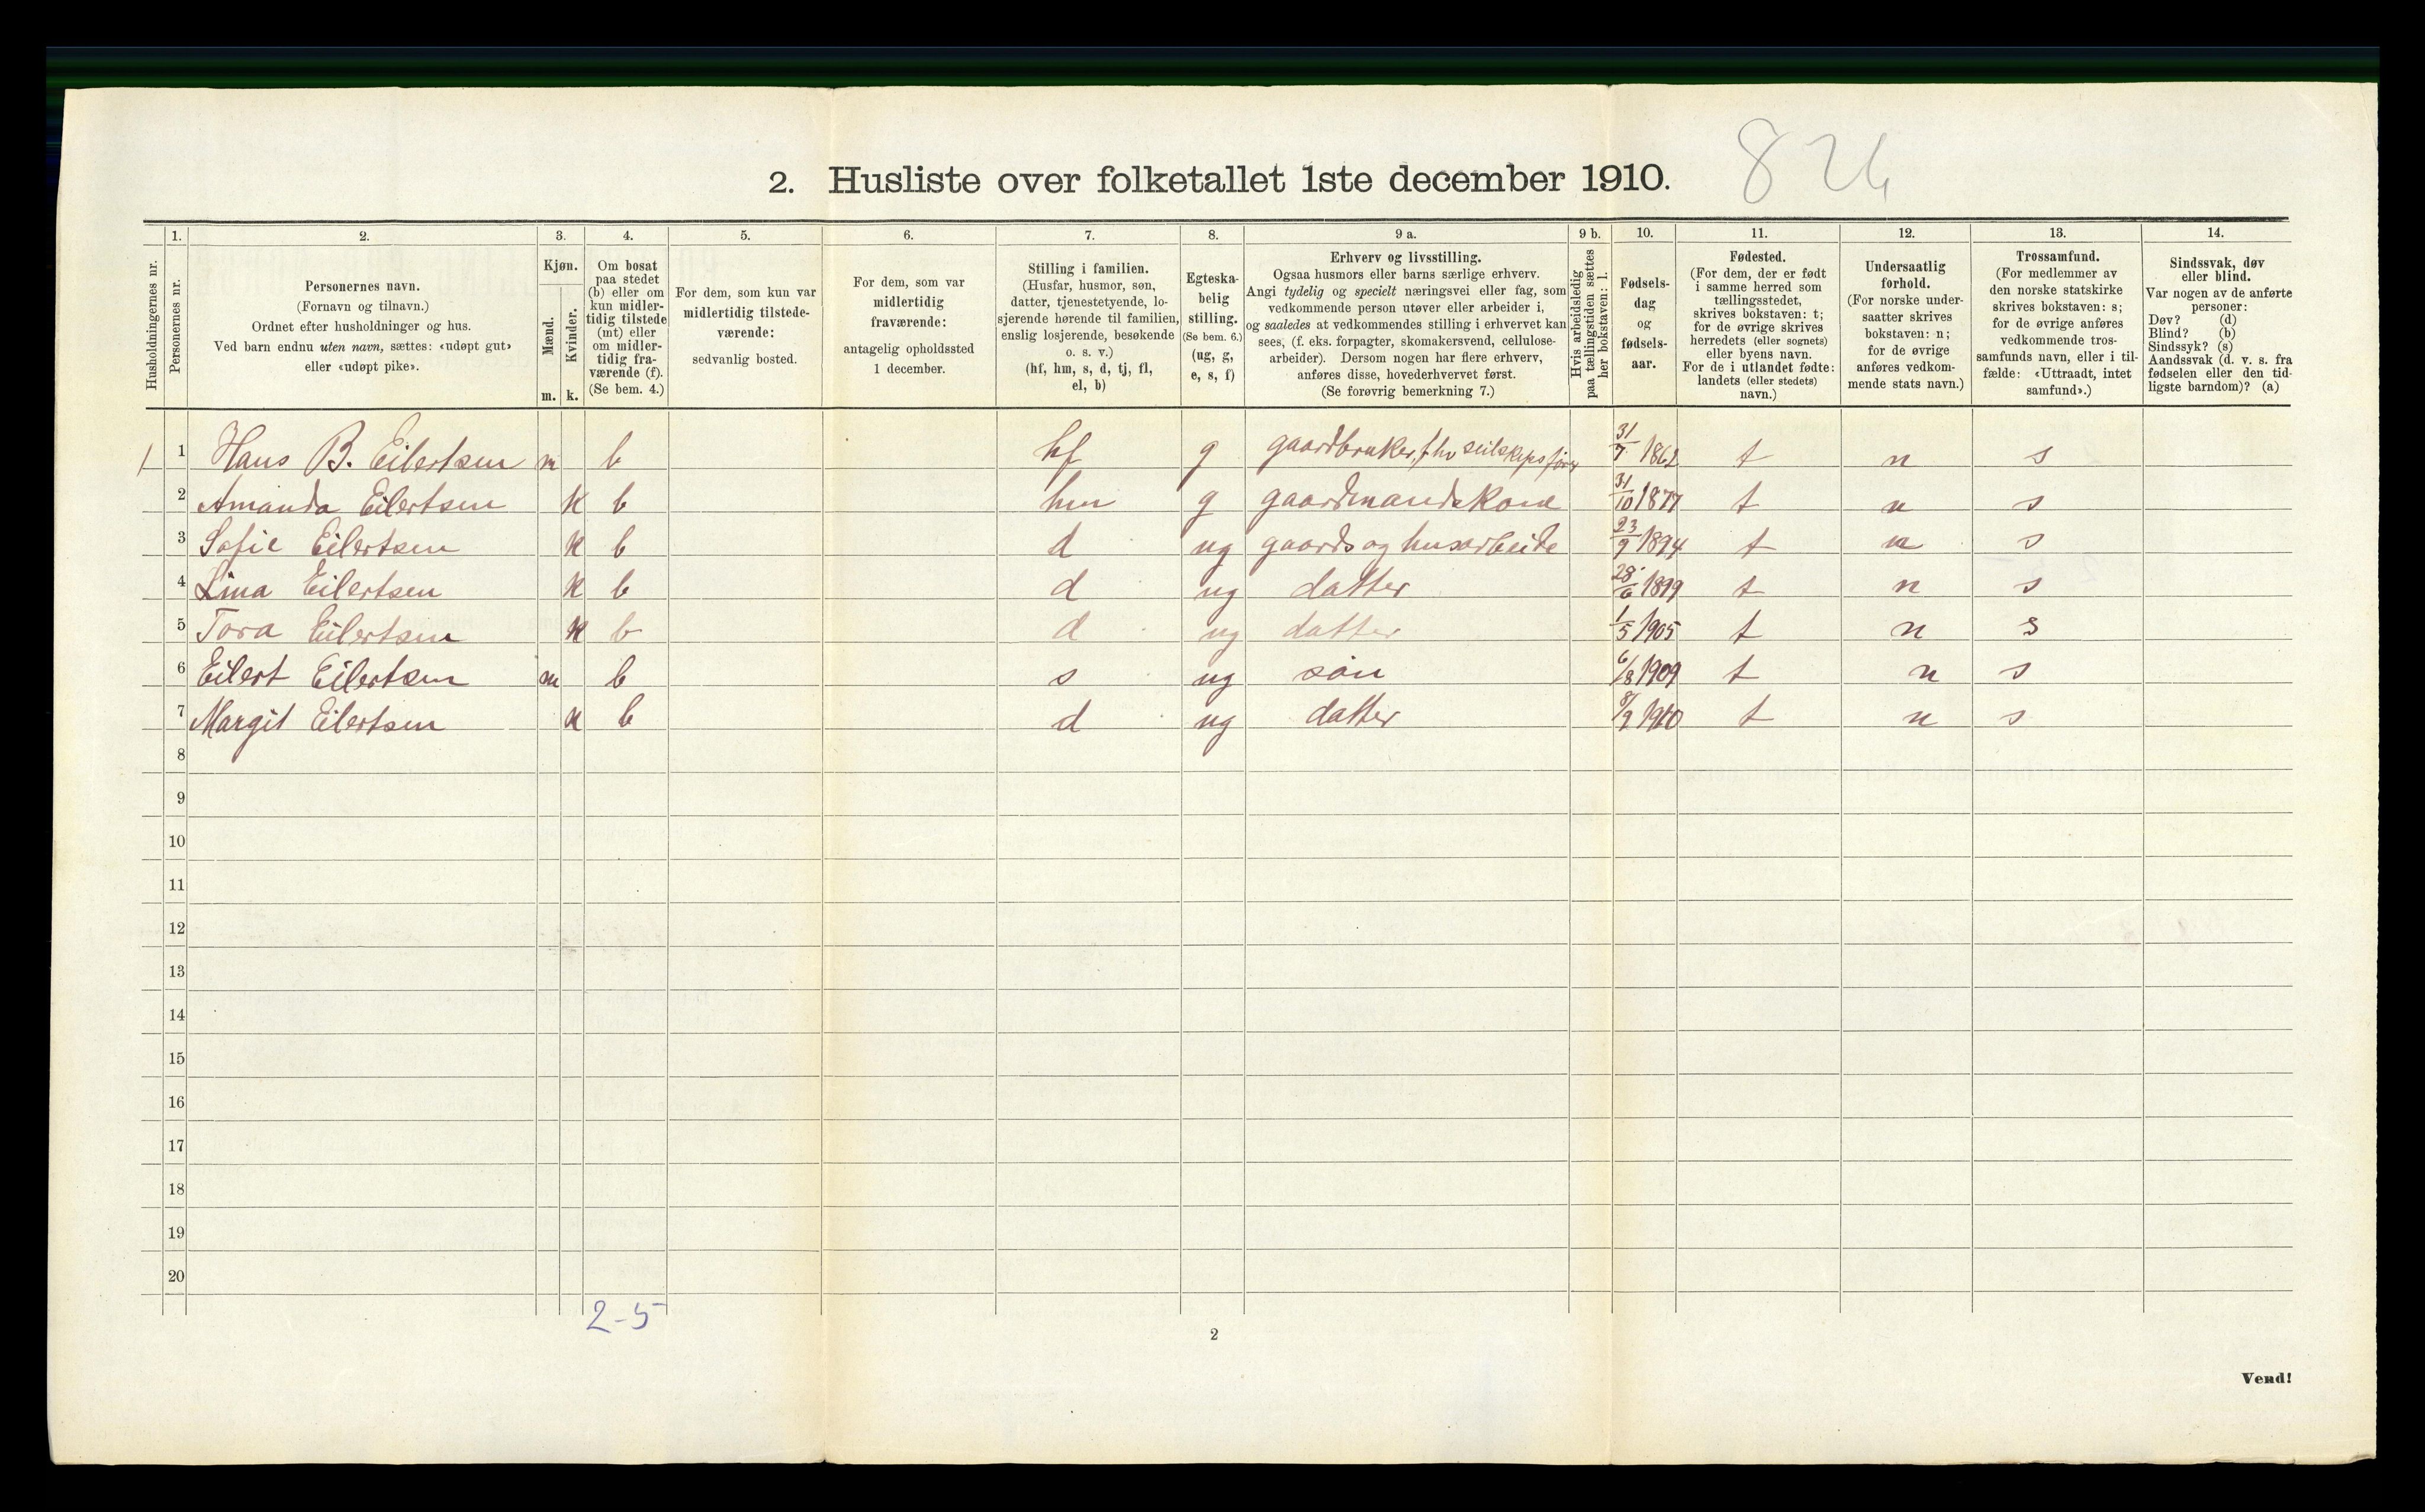 2. Husliste over folketallet 1ste december 1910.
Husholdningernes nr.
1.
Personernes nr.
2.
Personernes navn.
(Fornavn og tilnavn.)
Ordnet efter husholdninger og hus.
Ved barn endnu uten navn, sættes: «udøpt gut»
eller «udøpt pike».
3.
Kjøn.
Mænd.
Kvinder.
m. k.
4.
Om bosat
paa stedet
(b) eller om
kun midler-
tidig tilstede
(mt) eller
om midler-
tidig fra-
værende (f).
(Se bem. 4.)
5.
For dem, som kun var
midlertidig tilstede-
værende:
sedvanlig bosted.
6.
For dem, som var
midlertidig
fraværende:
antagelig opholdssted
1 december.
7.
Stilling i familien.
(Husfar, husmor, søn,
datter, tjenestetyende, lo-
sjerende hørende til familien,
enslig losjerende, besøkende
o. s. v.)
(hf, hm, s, d, tj, fl,
el, b)
8.
Egteska-
belig
stilling.
(Se bem. 6.)
(ug, g,
e, s, f)
9 a.
Erhverv og livsstilling.
Ogsaa husmors eller barns særlige erhverv.
Angi tydelig og specielt næringsvei eller fag, som
vedkommende person utøver eller arbeider i,
og saaledes at vedkommendes stilling i erhvervet kan
sees, (f. eks. forpagter, skomakersvend, cellulose-
arbeider). Dersom nogen har flere erhverv,
anføres disse, hovederhvervet først.
(Se forøvrig bemerkning 7.)
9 b.
Hvis arbeidsledig
paa tællingstiden sættes
her bokstaven: l.
10.
Fødsels-
dag
og
fødsels-
aar.
11.
Fødested.
(For dem, der er født
i samme herred som
tællingsstedet,
skrives bokstaven: t;
for de øvrige skrives
herredets (eller sognets)
eller byens navn.
For de i utlandet fødte:
landets (eller stedets)
navn.)
12.
Undersaatlig
forhold.
(For norske under-
saatter skrives
bokstaven: n;
for de øvrige
anføres vedkom-
mende stats navn.)
13.
Trossamfund.
(For medlemmer av
den norske statskirke
skrives bokstaven: s;
for de øvrige anføres
vedkommende tros-
samfunds navn, eller i til-
fælde: «Uttraadt, intet
samfund».)
14.
Sindssvak, døv
eller blind.
Var nogen av de anførte
personer:
Døv? (d)
Blind? (b)
Sindssyk? (s)
Aandssvak (d. v. s. fra
fødselen eller den tid-
ligste barndom)? (a)
1 1 Hans B. Eilertsen m b hf g gaardbruker, fhv seilskipsfører 31/7 1862 t n s
2 Amanda Eilertsen k b hm g gaardmandskone 31/10 1877 t n s
3 Sofie Eilertsen k b d ug gaards og husarbeide 23/9 1894 t n s
4 Lina Eilertsen k b d ug datter 28/6 1899 t n s
5 Tora Eilertsen k b d ug datter 1/5 1905 t n s
6 Eilert Eilertsen m b s ug søn 6/8 1909 t n s
7 Margit Eilertsen k b d ug datter 8/9 1910 t n s
8
9
10
11
12
13
14
15
16
17
18
19
20
2-5
2
Vend!